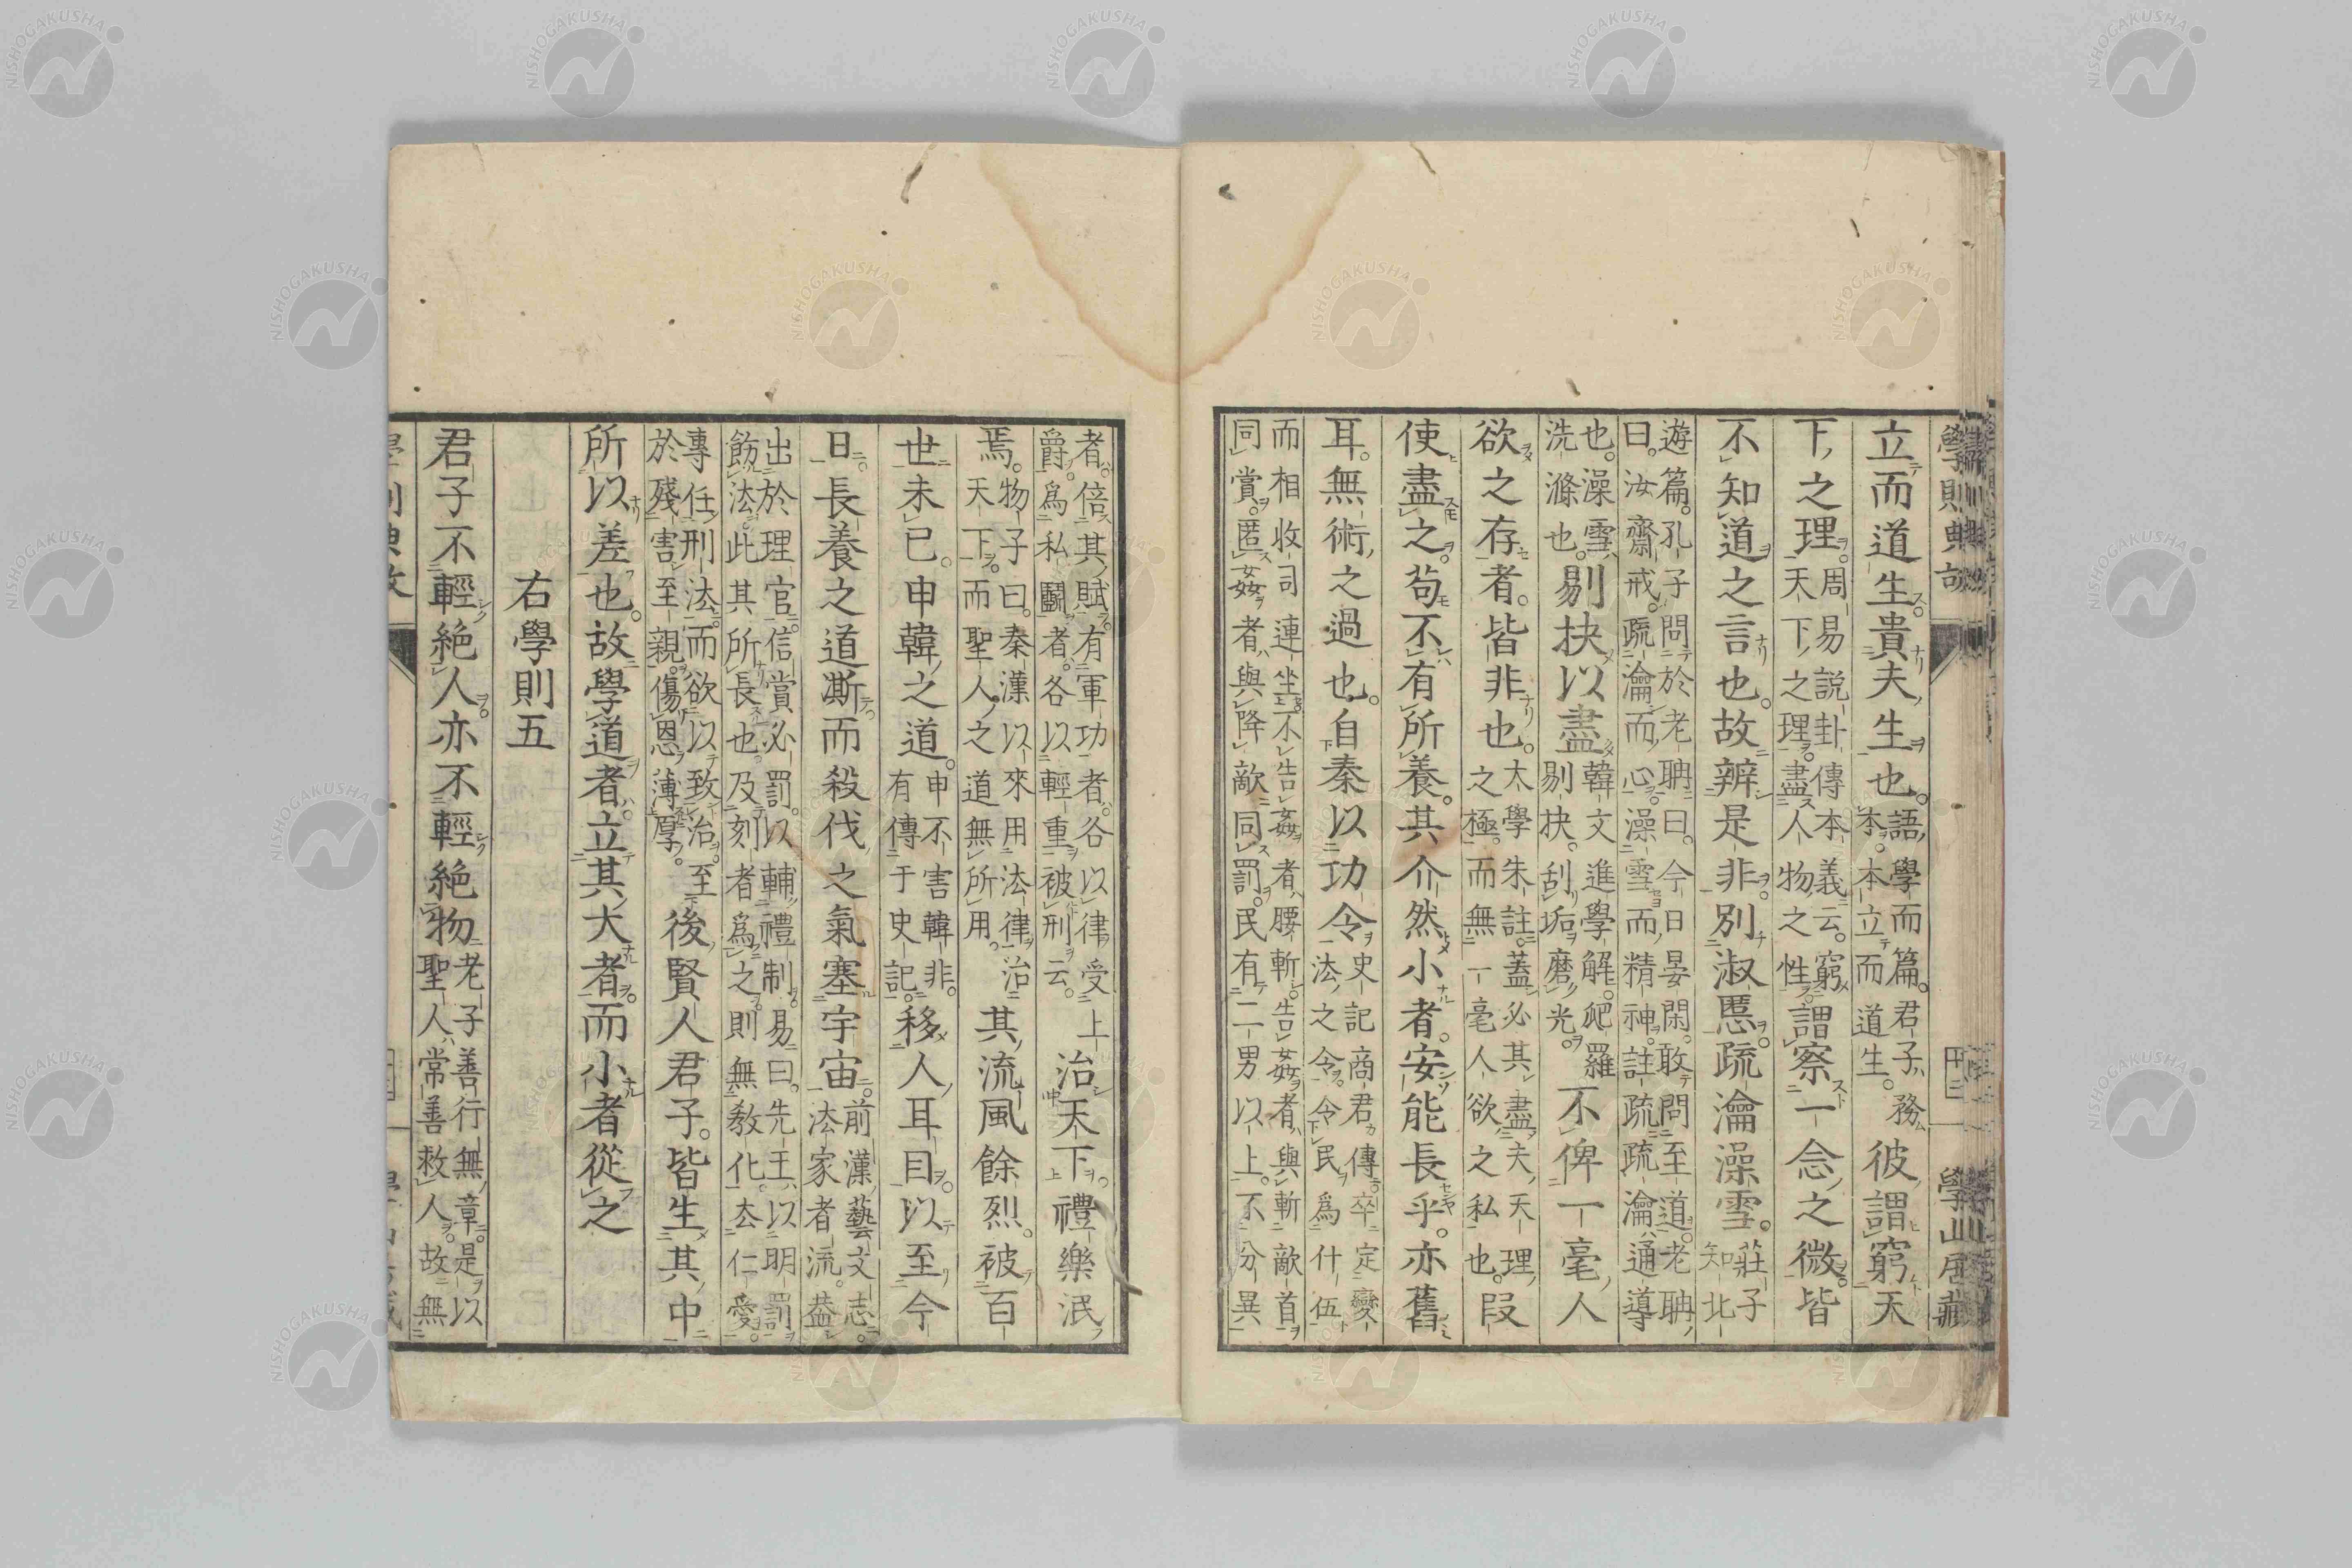 立而道生貴夫生也。語學而篇。君子務本。本立而道生。彼謂窮天
下之理。周易説卦傳本義云。窮天下之理。盡人物之性。謂察一念之微皆
不知道之言也。故辨是非。別淑慝。疏瀹澡雪。莊子知北
遊篇。孔子問於老聃曰。今日晏閑。敢問至道。老聃曰。汝齋戒。疏瀹而心。澡雪而精神。註疏疏瀹通導
也。澡雪洗滌也。剔抉以盡韓文進學解。爬羅剔抉。刮垢磨光。不俾一毫人
欲之存者。皆非也。大學朱註。蓋必其盡夫天理之極。而無一毫人欲之私也。叚
使盡之。苟不有所養。其介然小者。安能長乎。亦舊
耳。無術之過也。自秦以功令史記商君傳卒定變法之令。令民爲什伍
而相收司連坐。不告姦者腰斬。告姦者與斬敵首同賞。匿姦者與降敵同罰。民有二男以上。不分異
者。倍其賦。有軍功者。各以律受上爵。爲私鬭者。各以輕重被刑云。治天下。禮樂泯
焉。物子曰。秦漢以來用法律治天下。而聖人之道無所用。其流風餘烈。被百
世未已。申韓之道。申不害韓非。有傳于史記。移人耳目。以至今
日。長養之道凘而殺伐之氣塞宇宙。前漢藝文志。法家者流。蓋
出於理官。信賞必罰。以輔禮制。易曰。先王以明罰飭法。此其所長也。及刻者爲之。則無敎化。去仁愛
專任刑法。而欲以致治。至於殘害至親。傷恩薄厚。後賢人君子。皆生其中
所以差也。故學道者。立其大者。而小者從之
右學則五
君子不輕絶人。亦不輕絶物老子善行無章。是以聖人常善救人。故無
學則
十三
學山居藏